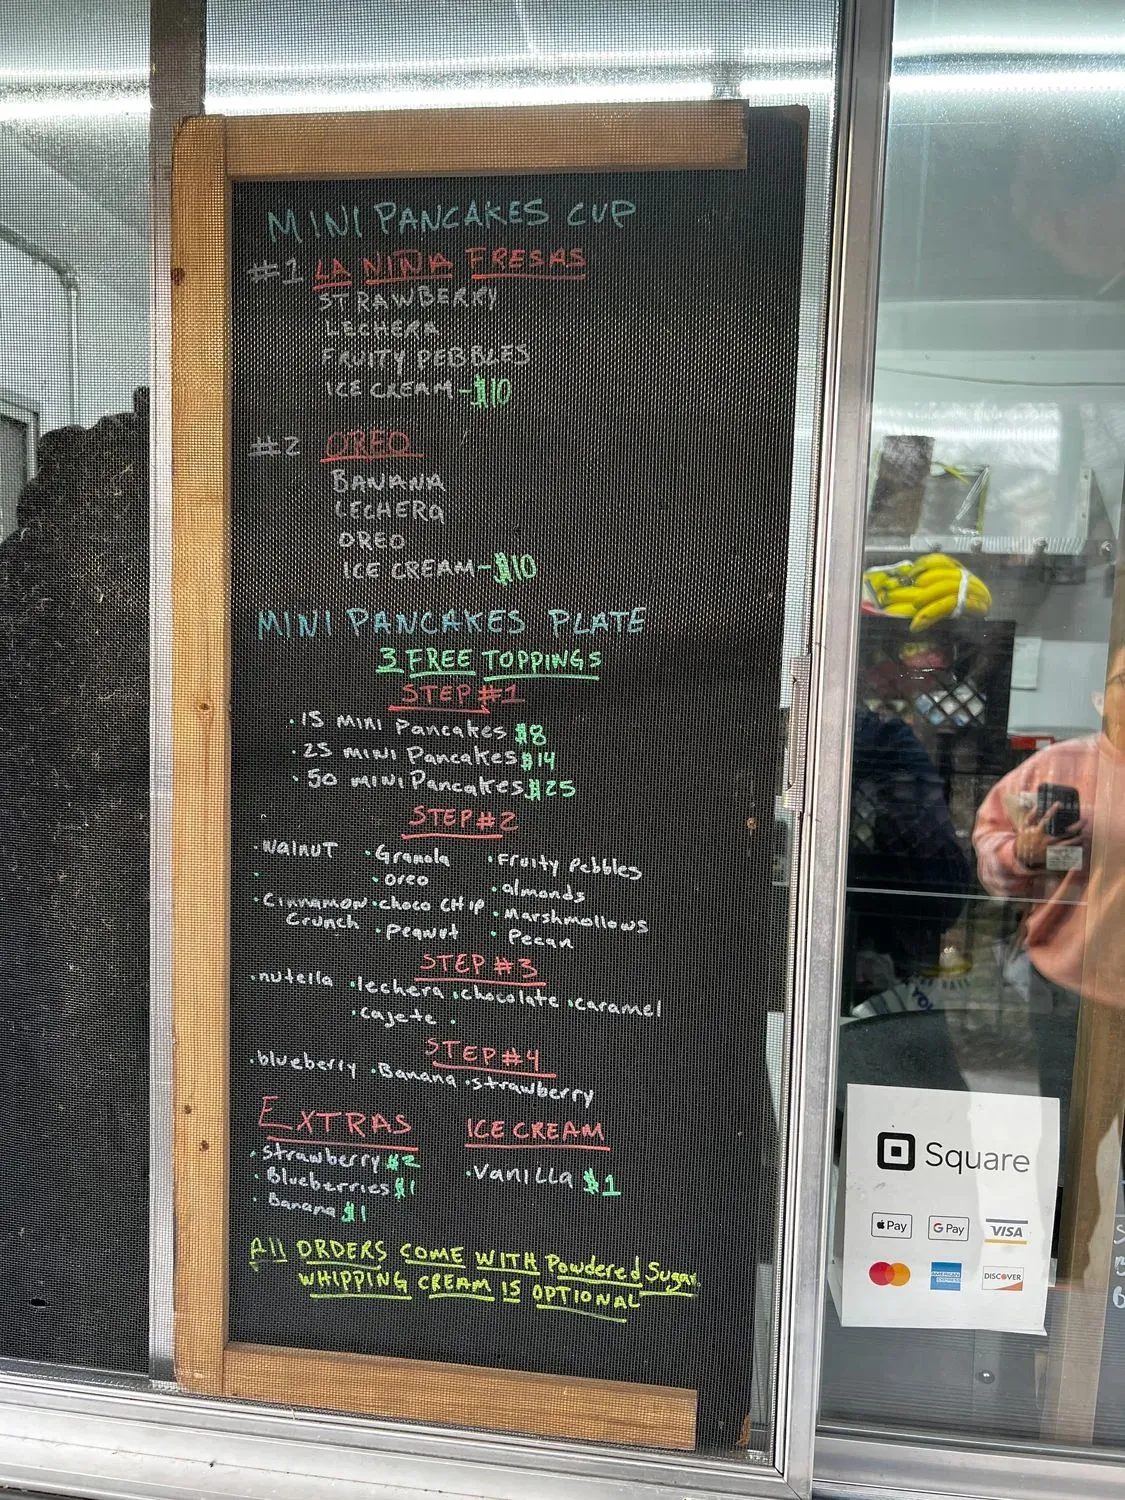 MINI PANCAKES CUP
#1 LA NIÑA FRESAS
STRAWBERRY
LECHERA
FRUITY PEBBLES
ICE CREAM-$10
#2 OREO
BANANA
LECHERA
OREO
ICE CREAM-$10
MINI PANCAKES PLATE
3 FREE TOPPINGS
STEP #1
.15 MINI Pancakes $8
.25 MINI Pancakes $14
.50 MINI Pancakes $25
STEP #2
.walnut .Granola .Fruity Pebbles
.oreo .almonds
.Cinnamon .choco CHIP .Marshmallows
Crunch .peanut .Pecan
STEP #3
.nutella .lechera .chocolate .caramel
.cajete .
STEP #4
.blueberry .Banana .strawberry
EXTRAS ICE CREAM
.strawberry $2 .Vanilla $1
.Blueberries $1
.Banana $1
All ORDERS COME WITH Powdered Sugar
WHIPPING CREAM IS OPTIONAL
Square
Pay
G Pay
VISA
AMERICAN EXPRESS
DISCOVER